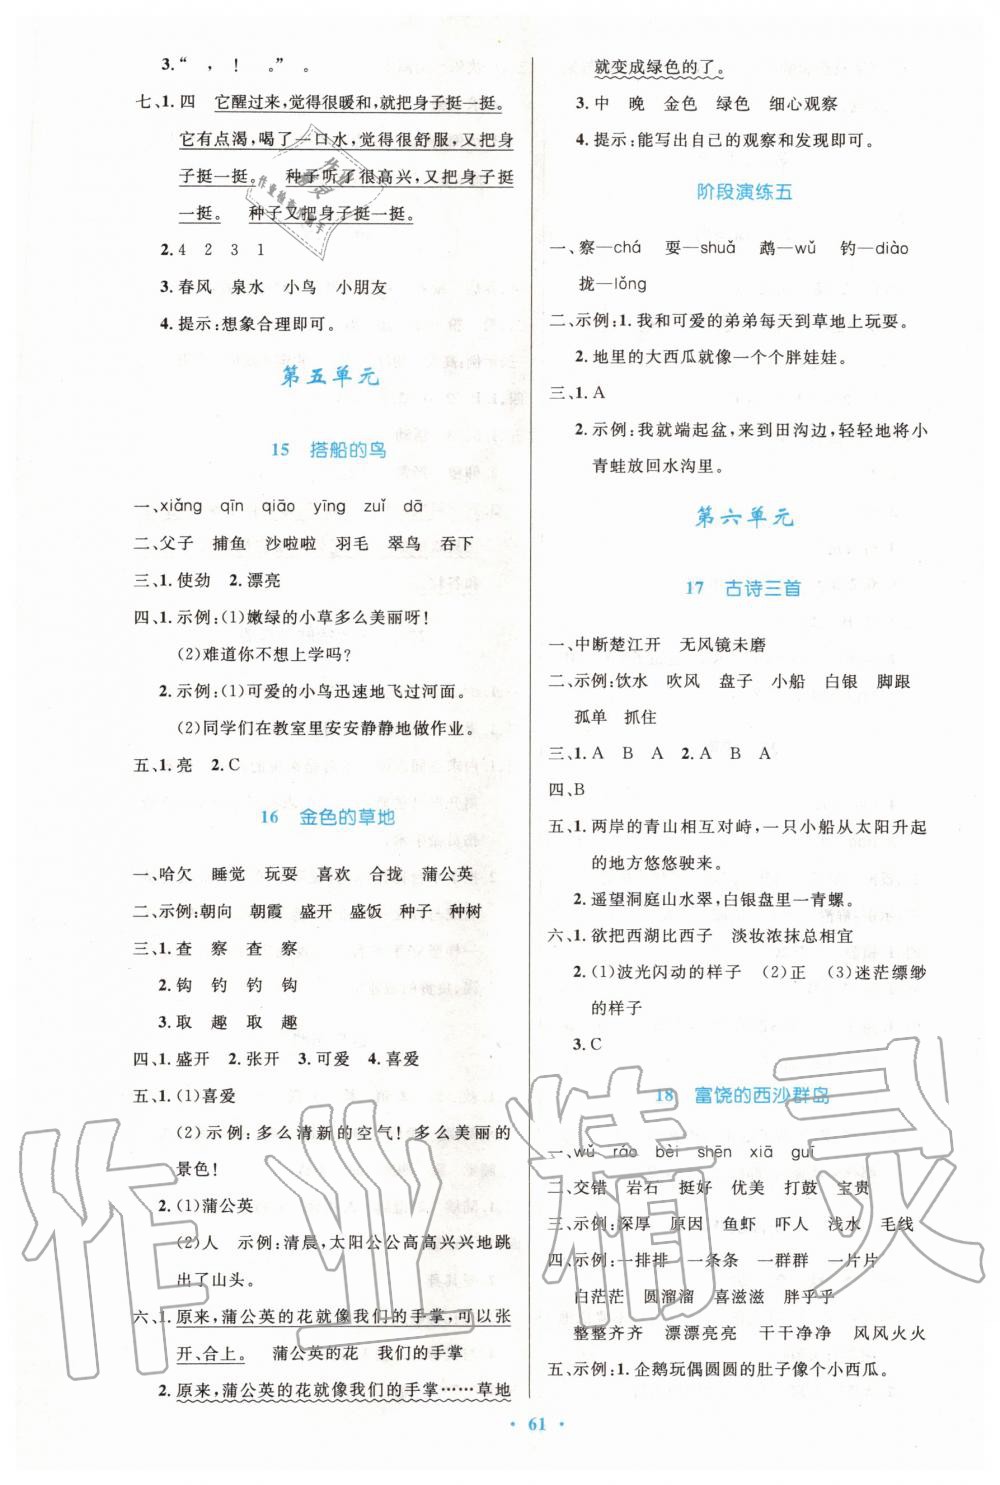 3.“　，！　。”　。
七、1.四　它醒过来，觉得很暖和，就把身子挺一挺。
它有点渴，喝了一口水，觉得很舒服，又把身
子挺一挺。　种子听了很高兴，又把身子挺
一挺。　种子又把身子挺一挺。
2.4　2　3　1
3.春风　泉水　小鸟　小朋友
4.提示：想象合理即可。
第五单元
15　搭船的鸟
一、xiǎng　qīn　qiāo　yīng　zuǐ　dā
二、父子　捕鱼　沙啦啦　羽毛　翠鸟　吞下
三、1.使劲　2.漂亮
四、1.示例：(1)嫩绿的小草多么美丽呀！
(2)难道你不想上学吗？
2.示例：(1)可爱的小鸟迅速地飞过河面。
(2)同学们在教室里安安静静地做作业。
五、1.亮　2.C
16　金色的草地
一、哈欠　睡觉　玩耍　喜欢　合拢　蒲公英
二、示例：朝向　朝霞　盛开　盛饭　种子　种树
三、1.查　察　查　察
2.钩　钓　钓　钩
3.取　趣　取　趣
四、1.盛开　2.张开　3.可爱　4.喜爱
五、1.(1)喜爱
(2)示例：多么清新的空气！多么美丽的
景色！
2.(1)蒲公英
(2)人　示例：清晨，太阳公公高高兴兴地跳
出了山头。
六、1.原来，蒲公英的花就像我们的手掌，可以张
开、合上。　蒲公英的花　我们的手掌
2.原来，蒲公英的花就像我们的手掌……草地
就变成绿色的了。
3.中　晚　金色　绿色　细心观察
4.提示：能写出自己的观察和发现即可。
阶段演练五
一、察—chá　耍—shuǎ　鹉—wǔ　钓—diào
拢—lǒng
二、示例：1.我和可爱的弟弟每天到草地上玩耍。
2.地里的大西瓜就像一个个胖娃娃。
三、1.A
2.示例：我就端起盆，来到田沟边，轻轻地将小
青蛙放回水沟里。
第六单元
17　古诗三首
一、中断楚江开　无风镜未磨
二、示例：饮水　吹风　盘子　小船　白银　脚跟
孤单　抓住
三、1.A　B　A　2.A　B　A
四、B
五、1.两岸的青山相互对峙，一只小船从太阳升起
的地方悠悠驶来。
2.遥望洞庭山水翠，白银盘里一青螺。
六、1.欲把西湖比西子　淡妆浓抹总相宜
2.(1)波光闪动的样子　(2)正　(3)迷茫缥缈
的样子
3.C
18　富饶的西沙群岛
一、wǔ　ráo　bèi　shēn　xiā　guī
二、交错　岩石　挺好　优美　打鼓　宝贵
三、示例：深厚　原因　鱼虾　吓人　浅水　毛线
四、示例：一排排　一条条　一群群　一片片
白茫茫　圆溜溜　喜滋滋　胖乎乎
整整齐齐　漂漂亮亮　干干净净　风风火火
五、示例：1.企鹅玩偶圆圆的肚子像个小西瓜。
· 61 ·
作业精灵